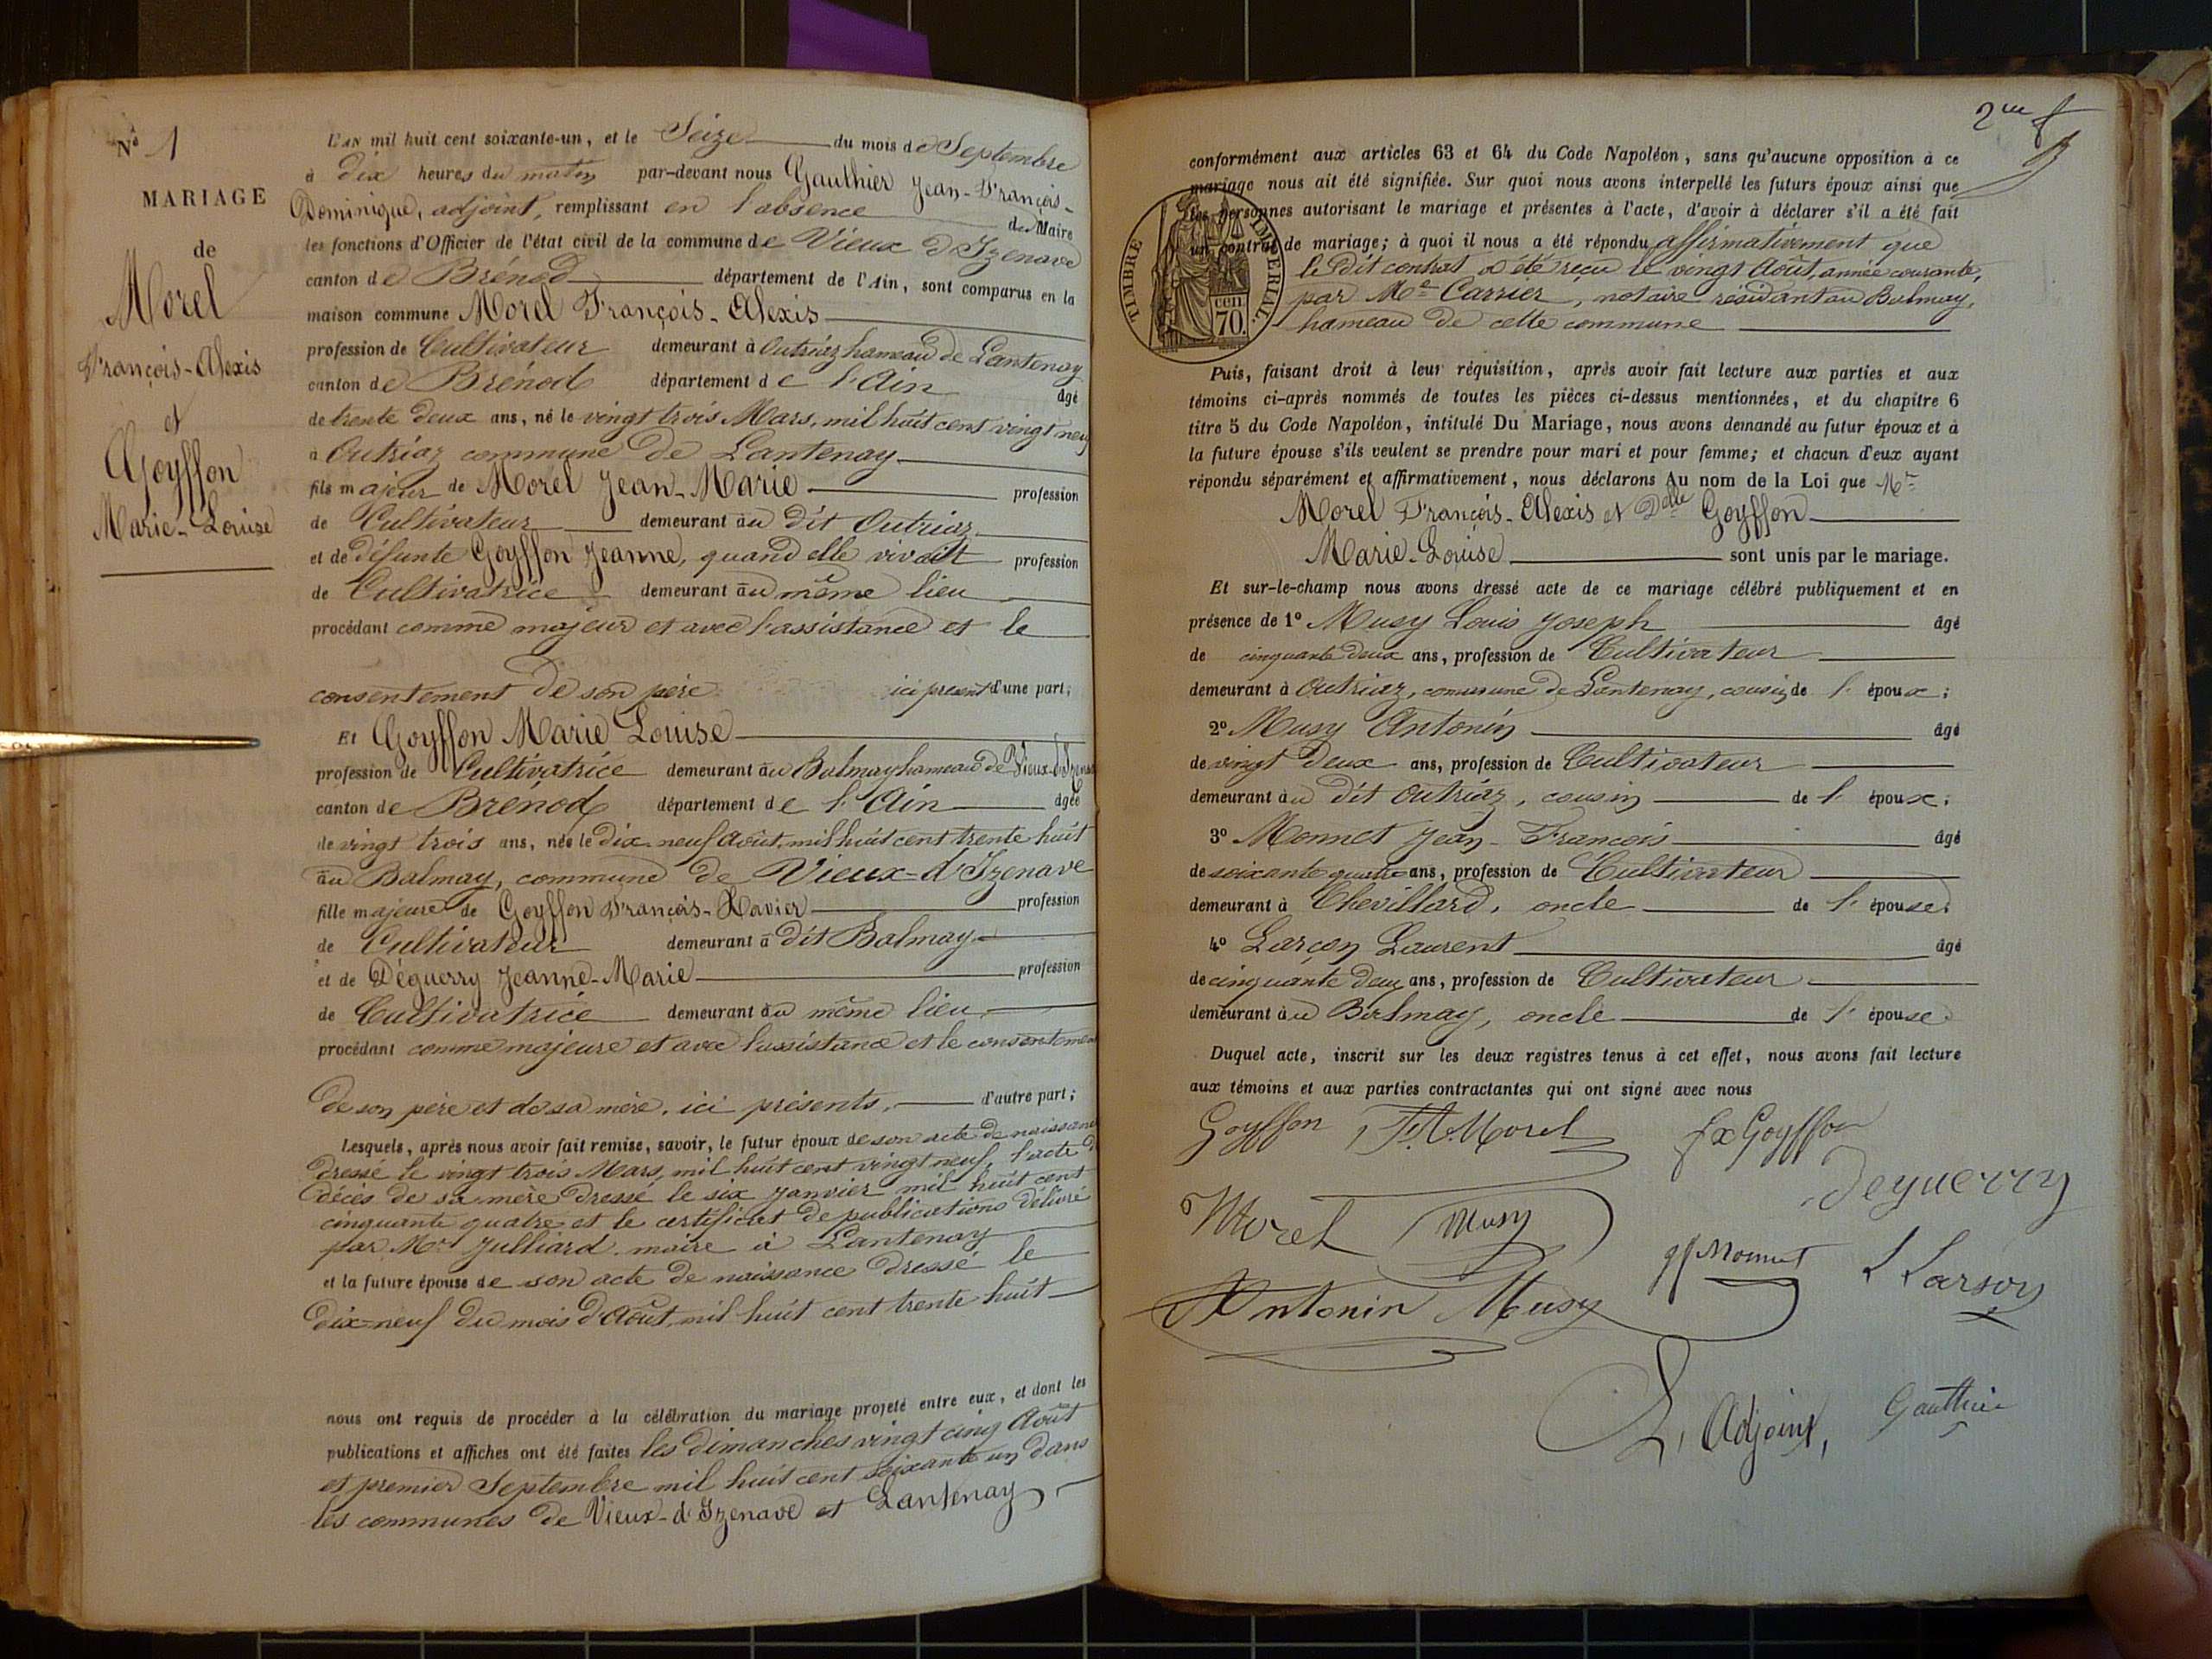 N° 1
MARIAGE
de
Morel
François-Alexis
et
Goyffon
Marie-Louise
L'AN mil huit cent soixante-un, et le Seize du mois de Septembre
à dix heures du matin par-devant nous Gauthier Jean-François-
Dominique, adjoint, remplissant en l'absence du Maire
les fonctions d'Officier de l'état civil de la commune de Vieux d'Izenave
canton de Brénod département de l'Ain, sont comparus en la
maison commune Morel François-Alexis
profession de Cultivateur demeurant à Outriaz hameau de Lantenay
canton de Brénod département de l'Ain âgé
de trente deux ans, né le vingt trois Mars, mil huit cent vingt neuf
à Outriaz commune de Lantenay
fils majeur de Morel Jean-Marie profession
de Cultivateur demeurant au dit Outriaz
et de défunte Goyffon Jeanne, quand elle vivait profession
de Cultivatrice demeurant au même lieu
procédant comme majeur et avec l'assistance et le
consentement de son père ici présent d'une part;
Et Goyffon Marie Louise
profession de Cultivatrice demeurant au Balmay hameau de Vieux-d'Izenave
canton de Brénod département de l'Ain âgée
de vingt trois ans, née le dix-neuf Août, mil huit cent trente huit
au Balmay, commune de Vieux-d'Izenave
fille majeure de Goyffon François-Xavier profession
de Cultivateur demeurant à dit Balmay
et de Déguerry Jeanne-Marie profession
de Cultivatrice demeurant au même lieu
procédant comme majeure et avec l'assistance et le consentement
de son père et de sa mère, ici présents, d'autre part;
Lesquels, après nous avoir fait remise, savoir, le futur époux de son acte de naissance
dressé le vingt trois Mars, mil huit cent vingt neuf, l'acte de
décès de sa mère dressé le six Janvier mil huit cent
cinquante quatre et le certificat de publications délivré
par Mr Julliard maire à Lantenay
et la future épouse de son acte de naissance dressé le
dix-neuf du mois d'Août, mil huit cent trente huit
nous ont requis de procéder à la célébration du mariage projeté entre eux, et dont les
publications et affiches ont été faites les dimanches vingt cinq Août
et premier Septembre mil huit cent soixante un dans
les communes de Vieux-d'Izenave et Lantenay,
2me f
conformément aux articles 63 et 64 du Code Napoléon, sans qu'aucune opposition à ce
mariage nous ait été signifiée. Sur quoi nous avons interpellé les futurs époux ainsi que
les personnes autorisant le mariage et présentes à l'acte, d'avoir à déclarer s'il a été fait
un contrat de mariage; à quoi il nous a été répondu affirmativement que
le dit contrat a été reçu le vingt Août, année courante,
par Me Carrier, notaire résidant au Balmay,
hameau de cette commune
TIMBRE IMPÉRIAL
cen
70.
Puis, faisant droit à leur réquisition, après avoir fait lecture aux parties et aux
témoins ci-après nommés de toutes les pièces ci-dessus mentionnées, et du chapitre 6
titre 5 du Code Napoléon, intitulé Du Mariage, nous avons demandé au futur époux et à
la future épouse s'ils veulent se prendre pour mari et pour femme; et chacun d'eux ayant
répondu séparément et affirmativement, nous déclarons Au nom de la Loi que Mr
Morel François-Alexis et Delle Goyffon
Marie-Louise sont unis par le mariage.
Et sur-le-champ nous avons dressé acte de ce mariage célébré publiquement et en
présence de 1° Musy Louis Joseph âgé
de cinquante deux ans, profession de Cultivateur
demeurant à Outriaz, commune de Lantenay, cousin de l'époux;
2° Musy Antonin âgé
de vingt deux ans, profession de Cultivateur
demeurant au dit Outriaz, cousin de l'époux;
3° Monnet Jean-François âgé
de soixante quatre ans, profession de Cultivateur
demeurant à Chevillard, oncle de l'épouse
4° Larçon Laurent âgé
de cinquante deux ans, profession de Cultivateur
demeurant au Balmay, oncle de l'épouse
Duquel acte, inscrit sur les deux registres tenus à cet effet, nous avons fait lecture
aux témoins et aux parties contractantes qui ont signé avec nous
Goyffon F.A. Morel fx Goyffon
Deguerry
Morel Musy
jf Monnet L Larson
Antonin Musy
L'Adjoint, Gauthier